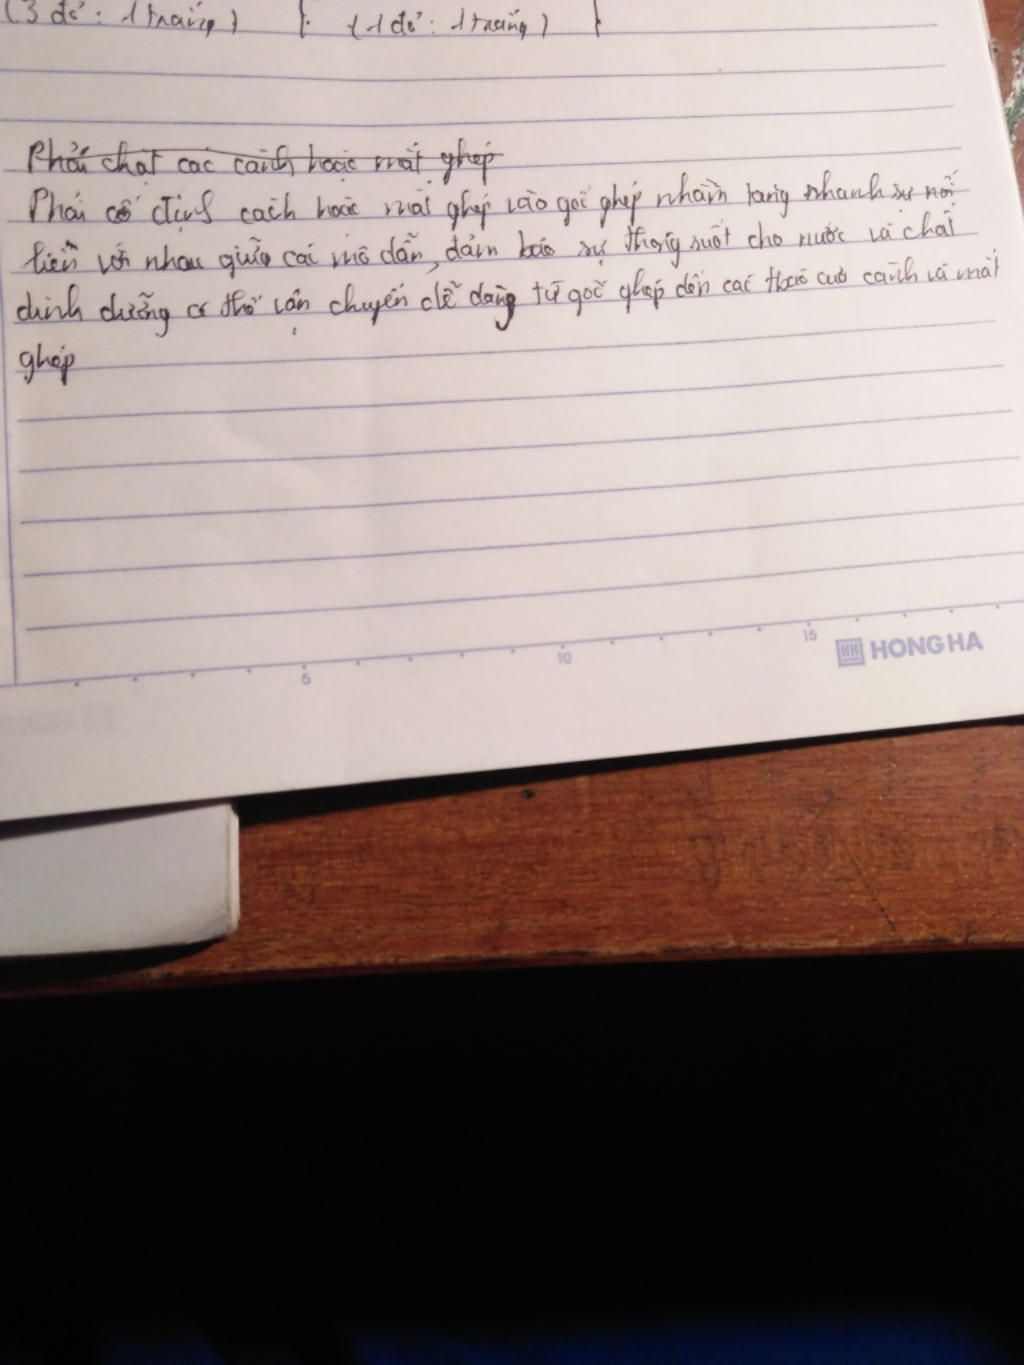 (3 đỏ : 1 trắng) (1 đỏ : 1 trắng)
Phải chặt các cành hoặc mắt ghép
Phải cố định cành hoặc mắt ghép vào gốc ghép nhằm tăng nhanh sự nối
liền với nhau giữa các mô dẫn, đảm bảo sự thông suốt cho nước và chất
dinh dưỡng có thể vận chuyển dễ dàng từ gốc ghép đến các của cành và mắt
ghép
5 10 15 HONG HA